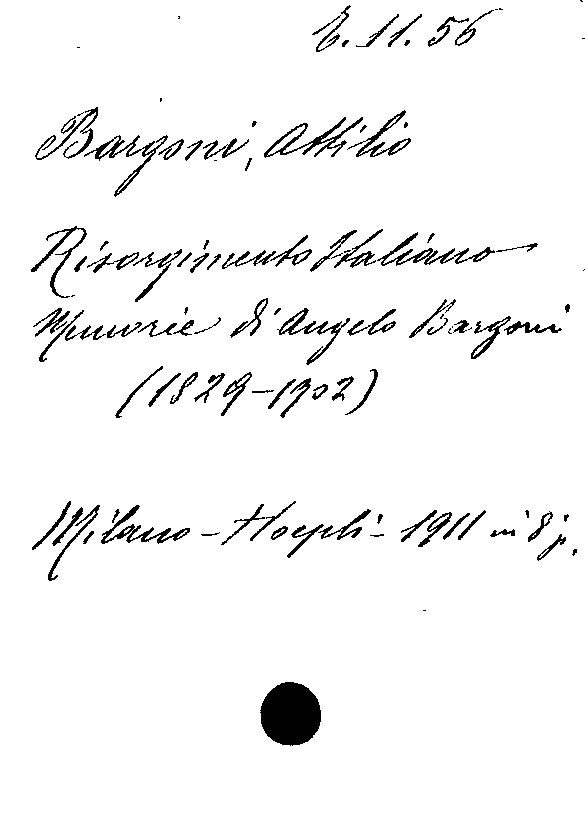 E. 11. 56
Bargoni, Attilio
Risorgimento Italiano
Memorie di Angelo Bargoni
(1829-1902)
Milano - Hoepli - 1911 in 8 p.